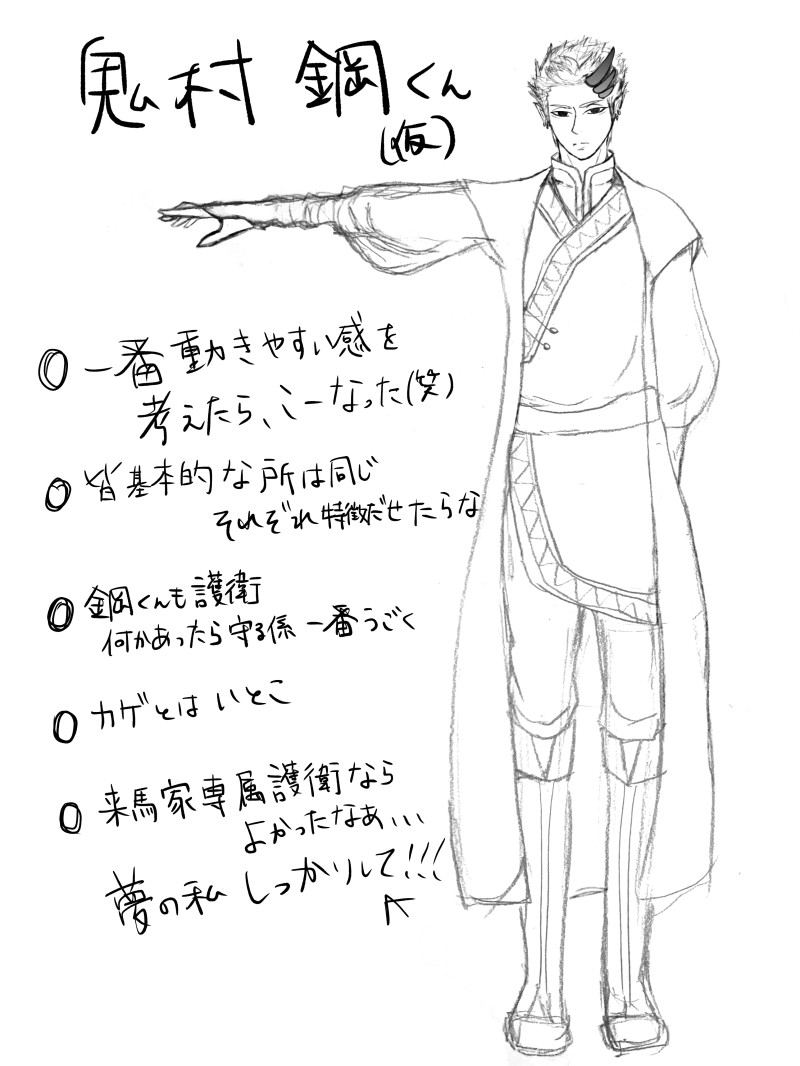 鬼村 鋼くん
(仮)
一番動きやすい感を
考えたら、こーなった(笑)
皆基本的な所は同じ
それぞれ特徴だせたらな
鋼くんも護衛
何かあったら守る係 一番うごく
カゲとは いとこ
来馬家専属護衛なら
よかったなぁ...
夢の私 しっかりして!!!